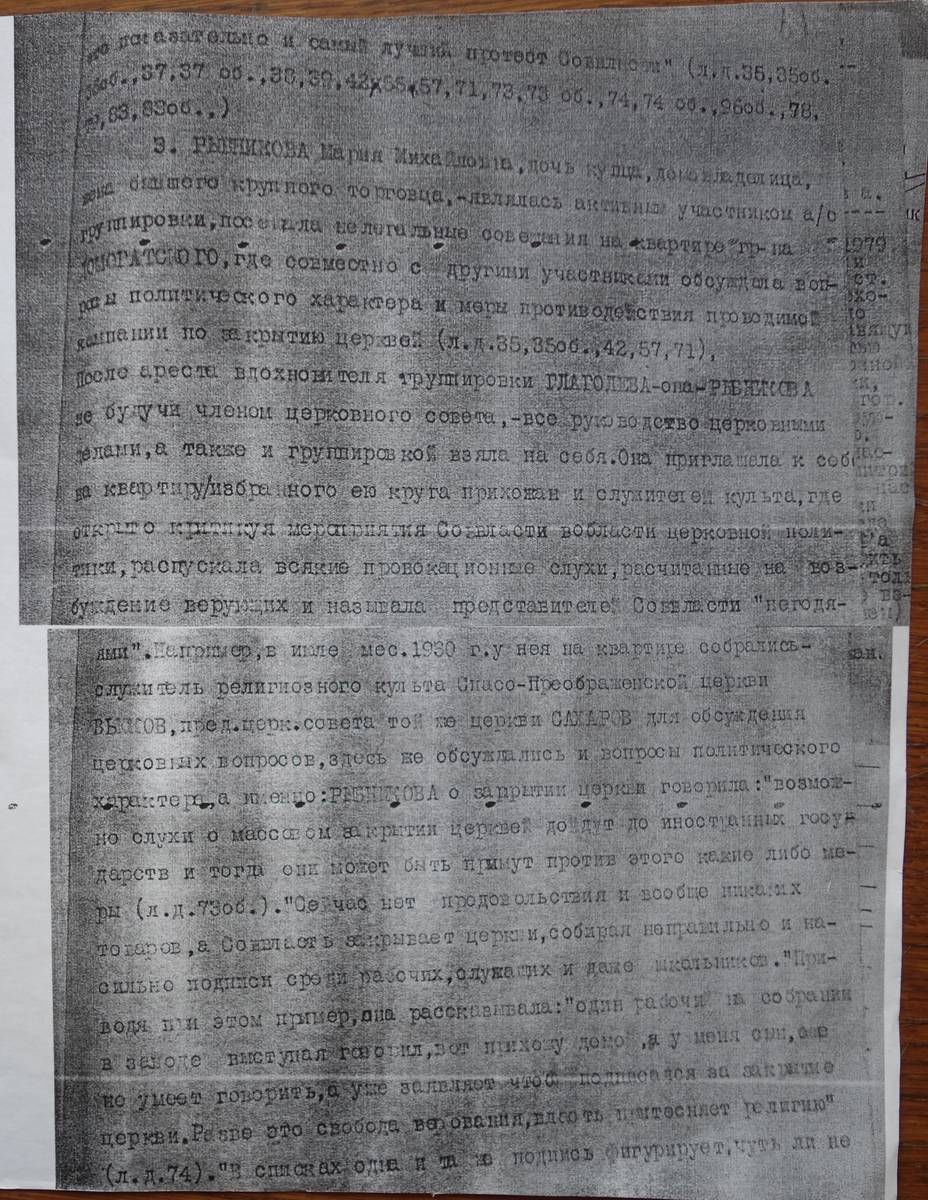 показательно и самый лучший протест Соввласти" (л.д.35,35об.
36об.,37,37 об.,38,39,42,55,57,71,73,73 об.,74,74 об.,96об.,78,
83,83об.,)
3. РЫБНИКОВА Мария Михайловна, дочь купца, домовладелица,
жена бывшего крупного торговца,-являлась активным участником а/с
группировки, посещала нелегальные совещания на квартире гр-на
ДОМОГАТСКОГО, где совместно с другими участниками обсуждала воп-
росы политического характера и меры противодействия проводимой
кампании по закрытию церквей (л.д.35,35об.,42,57,71),
После ареста вдохновителя группировки ГЛАГОЛЕВА-она-РЫБНИКОВА
не будучи членом церковного совета,-все руководство церковными
делами,а также и группировкой взяла на себя.Она приглашала к себе
на квартиру/избранного ею круга прихожан и служителей культа,где
открыто критикуя мероприятия Соввласти вобласти церковной поли-
тики,распускала всякие провокационные слухи,расчитанные на воз-
буждение верующих и называла представителей Соввласти "негодя-
ями".Например,в июле мес.1930 г.у нея на квартире собрались-
служитель религиозного культа Спасо-Преображенской церкви
ВЫКОВ,пред.церк.совета той же церкви САХАРОВ для обсуждения
церковных вопросов,здесь же обсуждались и вопросы политического
характера,а именно:РЫБНИКОВА о закрытии церкви говорила:"возмож-
но слухи о массовом закрытии церквей дойдут до иностранных госу-
дарств и тогда они может быть примут против этого какие либо ме-
ры (л.д.73об.)."Сейчас нет продовольствия и вообще никаких
товаров,а Соввласть закрывает церкви,собирая неправильно и на-
сильно подписи среди рабочих,служащих и даже школьников."При-
водя при этом пример,она рассказывала:"один рабочий на собрании
в заводе выступая говорил,вот прихожу домой,а у меня сын,еле
не умеет говорить,а уже заявляет что подписался за закрытие
церкви.Разве это свобода верования,власть притесняет религию"
(л.д.74)."В списках одна и та же подпись фигурирует,чуть ли не